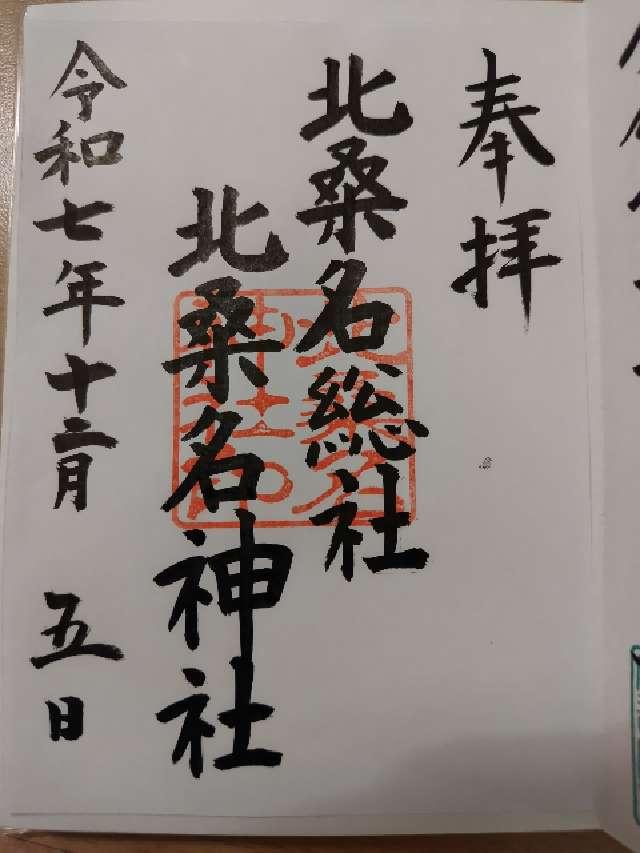 奉拝
北桑名総社
北桑名神社
令和七年十二月 五日